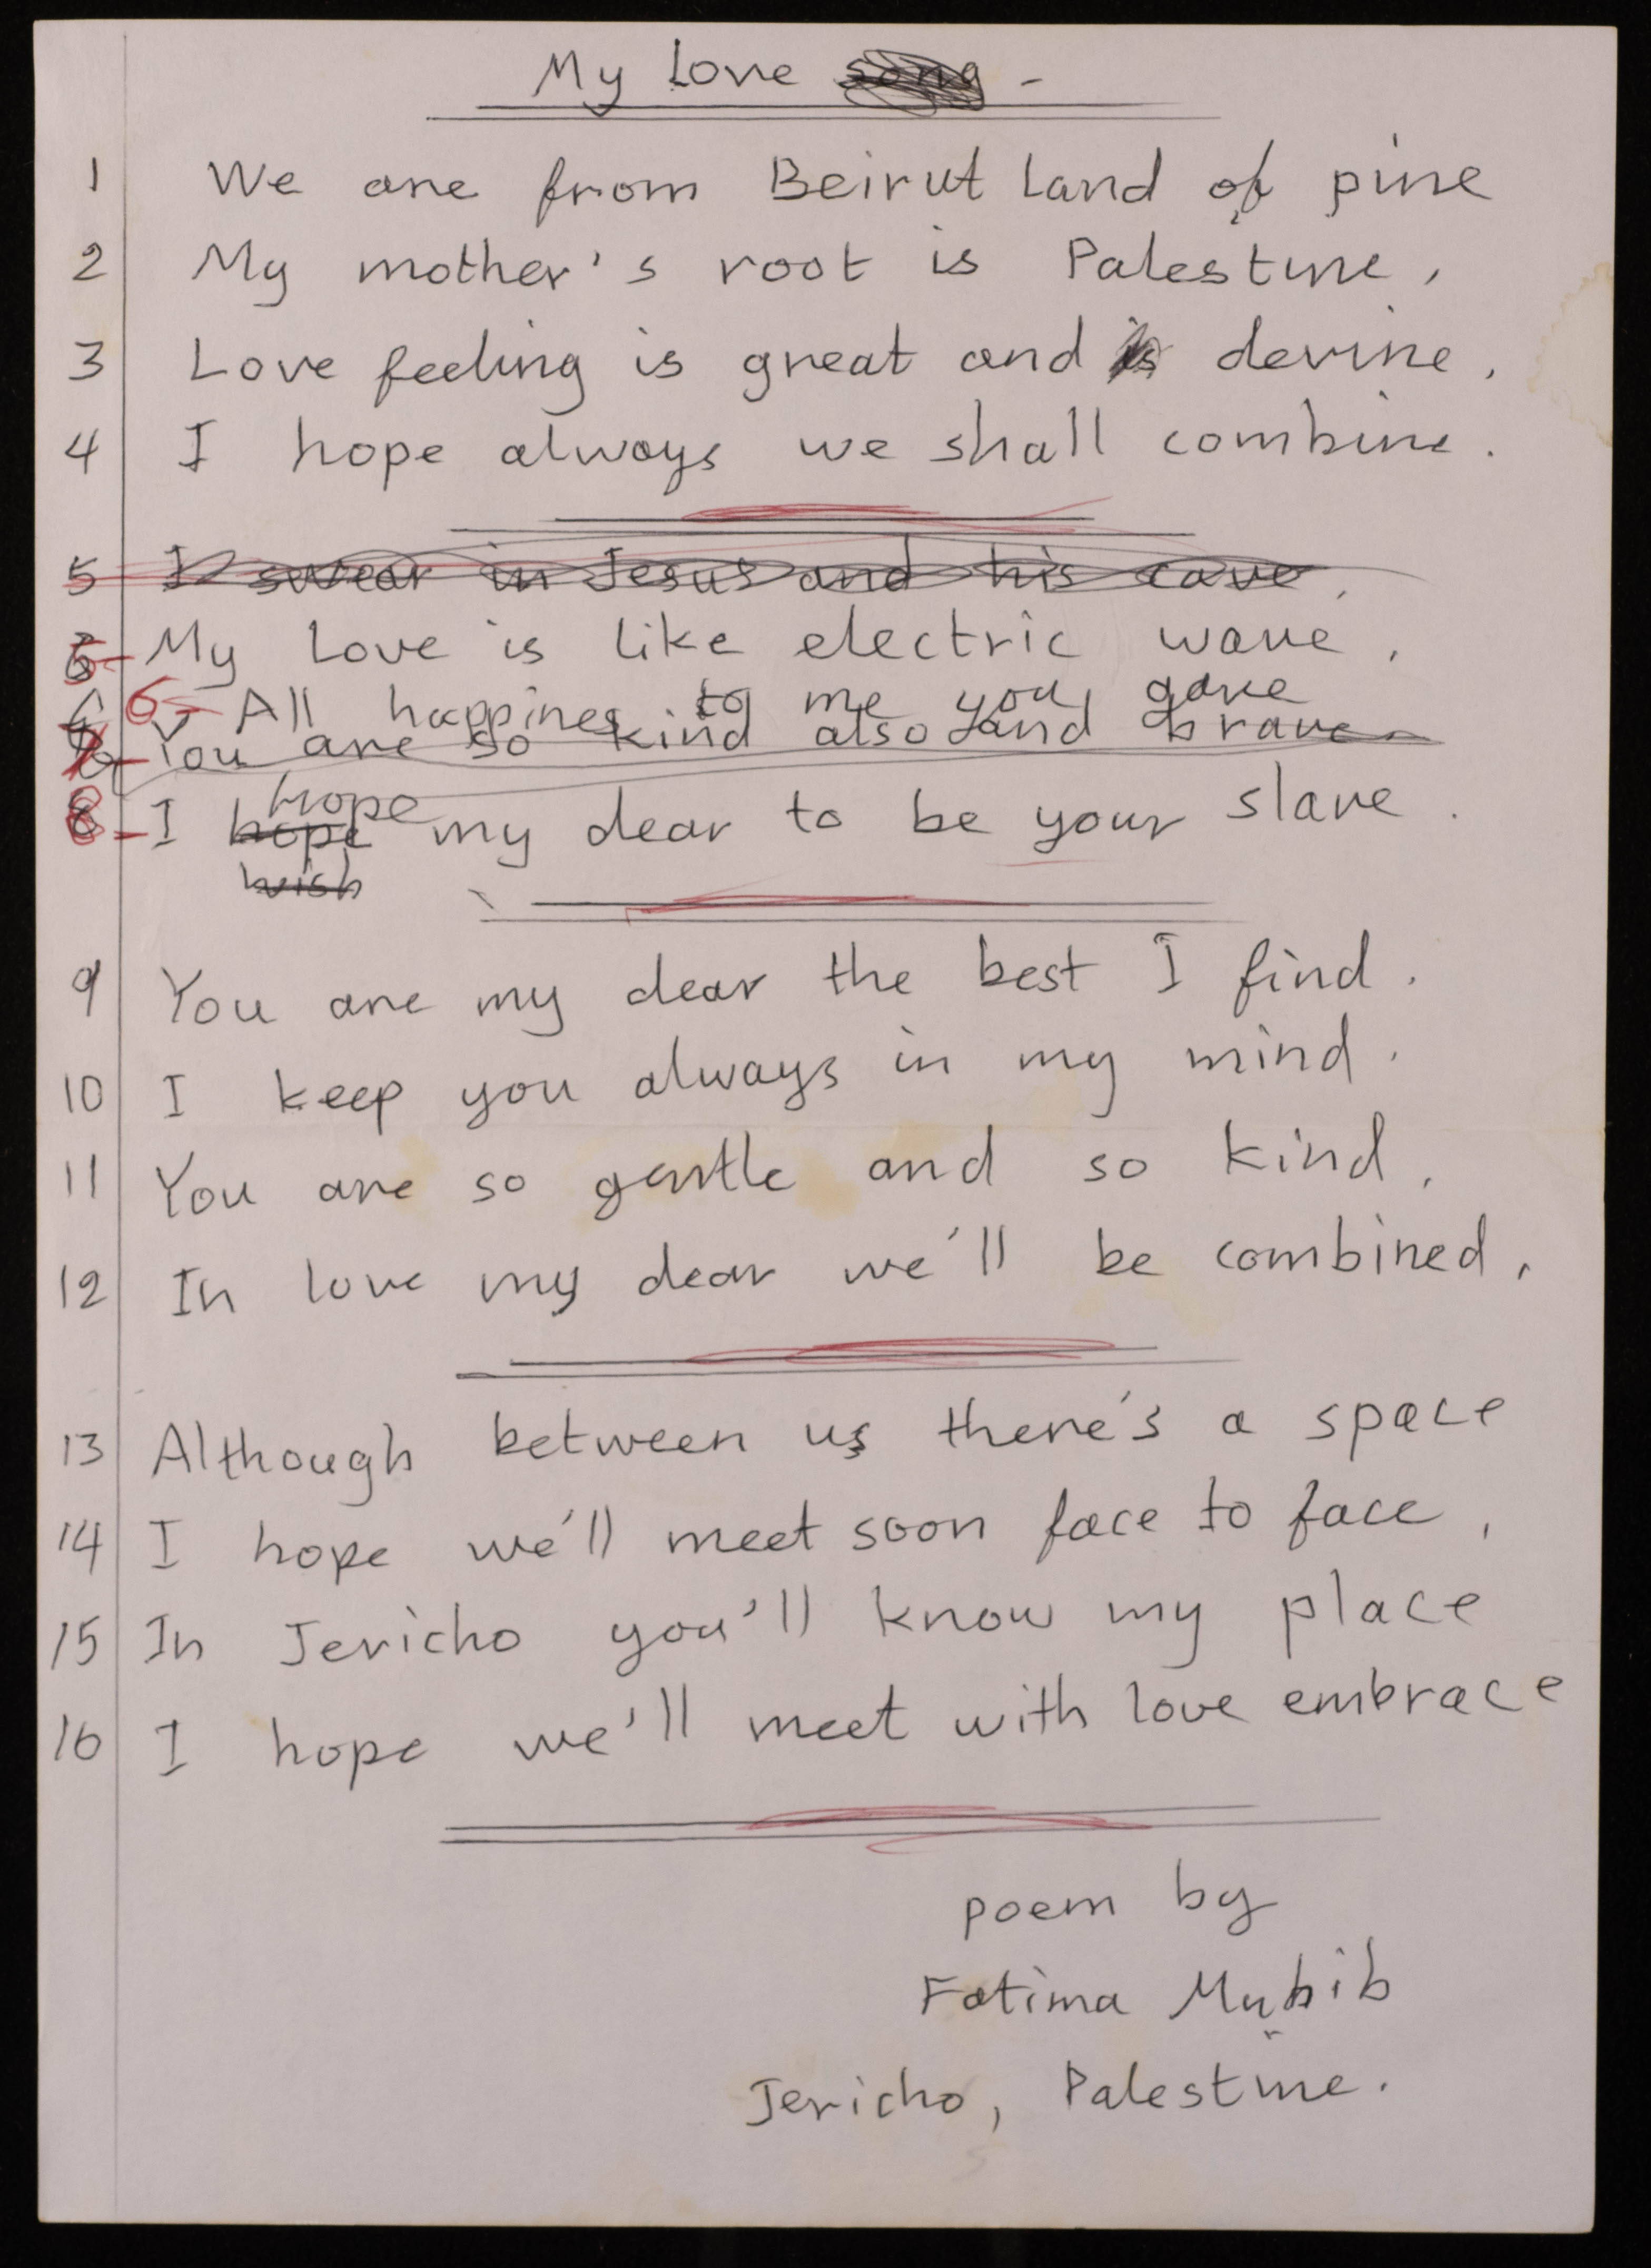 My Love song -
1 We are from Beirut Land of pine
2 My mother's root is Palestine,
3 Love feeling is great and is devine,
4 I hope always we shall combine.
5 I swear in Jesus and his cave,
5- My Love is like electric wave,
6- All happines to me you gave
7- You are so kind also and brave
hope
8- I hope my dear to be your slave.
wish
9 You are my dear the best I find.
10 I keep you always in my mind.
11 You are so gentle and so kind,
12 In love my dear we'll be combined,
13 Although between us there's a space
14 I hope we'll meet soon face to face,
15 In Jericho you'll know my place
16 I hope we'll meet with love embrace
poem by
Fatima Muhib
Jericho, Palestine.